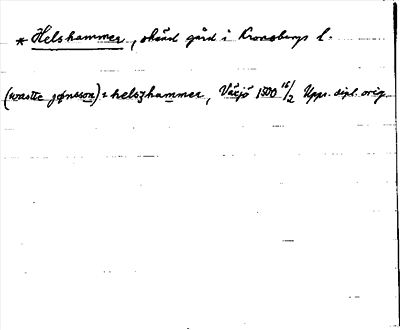 * Helshammer, okänd gård i Kronobergs l.
(wastte jønsson) i helszhammer, Växjö 1500 16/2 Upps. dipl. orig.